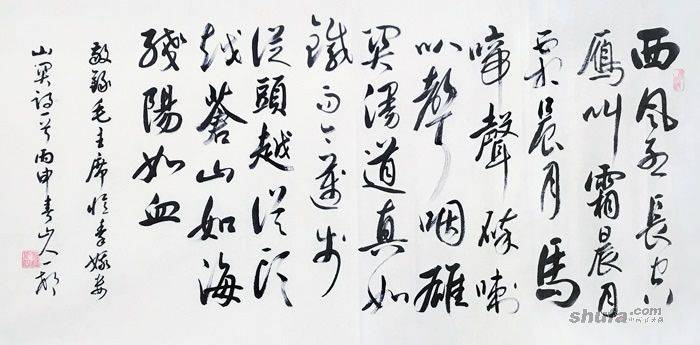 西风烈長空
雁叫霜晨月
霜晨月馬
啼聲碎喇
叭聲咽雄
關漫道真如
鐵而今邁步
從頭越從頭
越蒼山如海
殘陽如血
敬錄毛主席憶秦娥婁
山關詞一首丙申春山人一
shufa.com